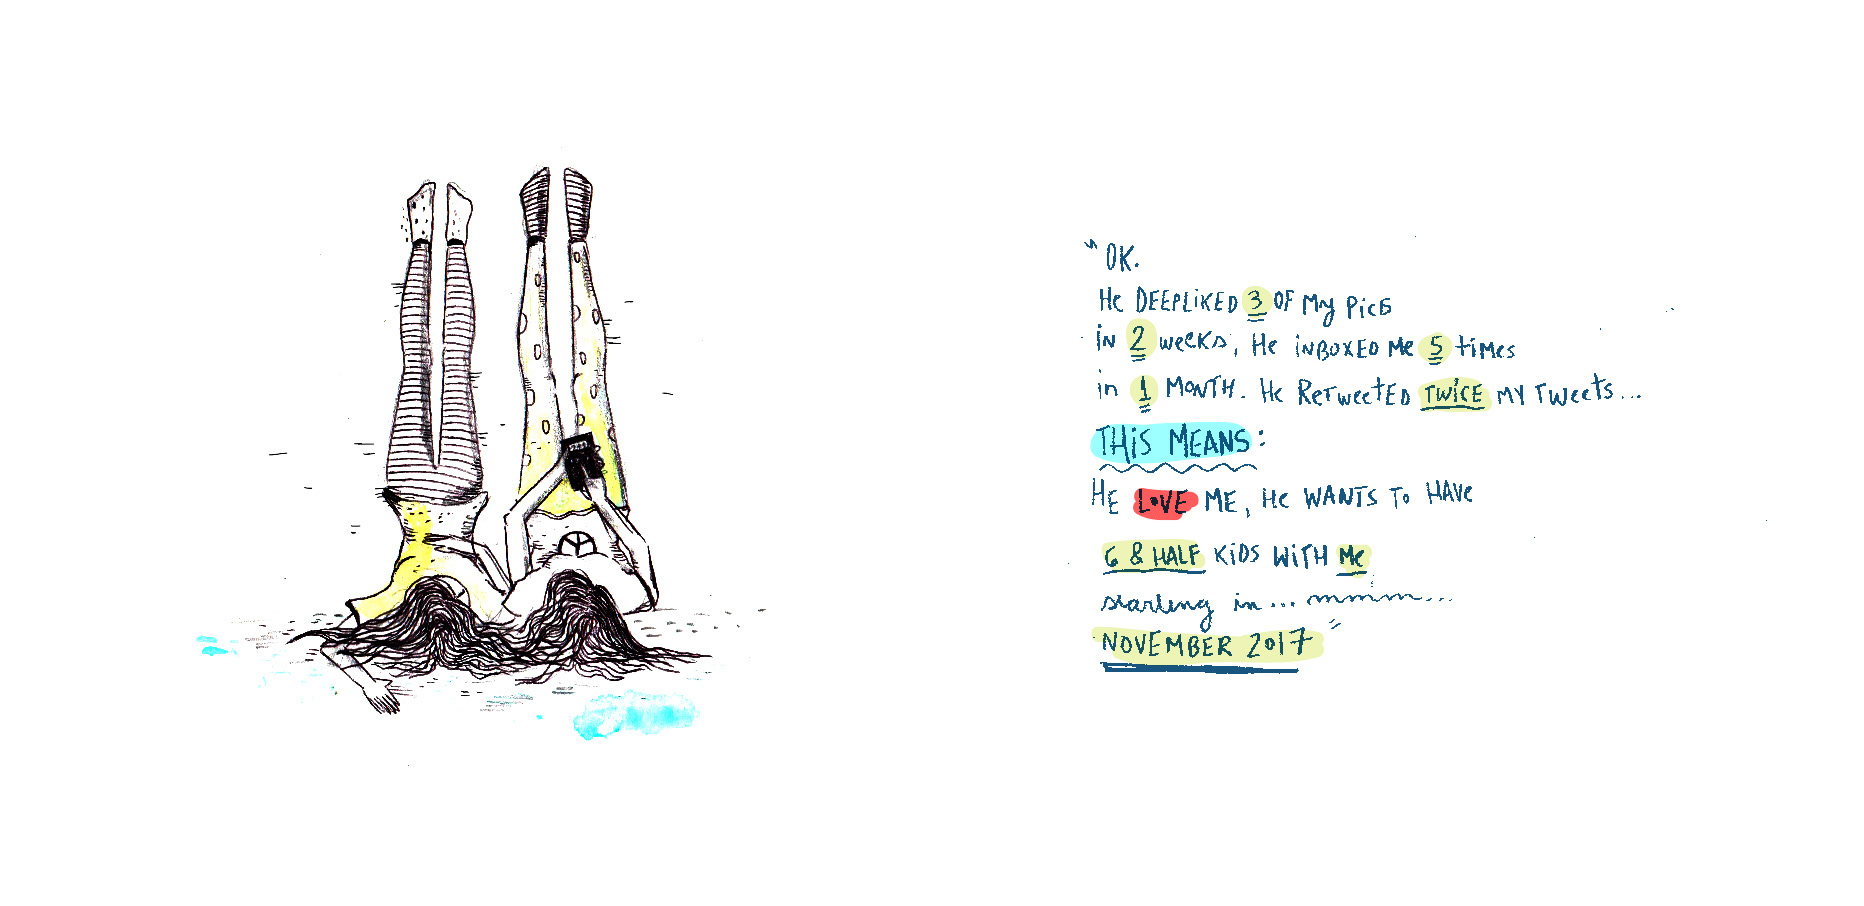 "OK.
He DEEPLiKED 3 OF My Pics
iN 2 weeks, He iNBOXED Me 5 times
in 1 MONTH. He ReTweeteD TWiCE MY TWeets...
THiS MEANS:
HE LOVE ME, He WANTS To HAVe
6 & HALF KiDS WiTH Me
starting in... mmmm...
NOVEMBER 2017"